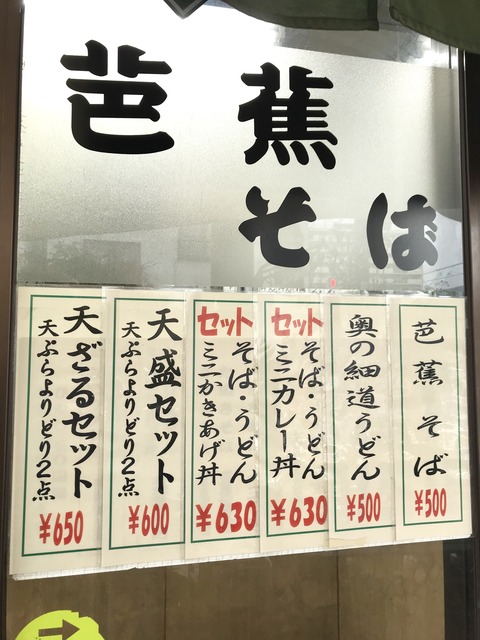 芭蕉
そば
芭蕉そば
¥500
奥の細道うどん
¥500
セット
そば・うどん
ミニカレー丼
¥630
セット
そば・うどん
ミニかきあげ丼
¥630
天盛セット
天ぷらよりどり2点
¥600
天ざるセット
天ぷらよりどり2点
¥650